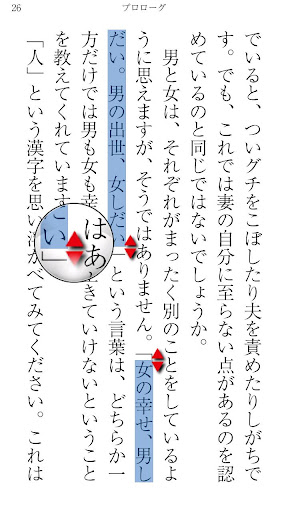 26
プロローグ
でいると、ついグチをこぼしたり夫を責めたりしがちで
す。でも、これでは妻の自分に至らない点があるのを認
めているのと同じではないでしょうか。
男と女は、それぞれがまったく別のことをしているよ
うに思えますが、そうではありません。「女の幸せ、男し
だい。男の出世、女しだい」という言葉は、どちらか一
方だけでは男も女も幸きていけないということ
を教えてくれています
「人」という漢字を思い浮かべてみてください。これは
はあ
い」